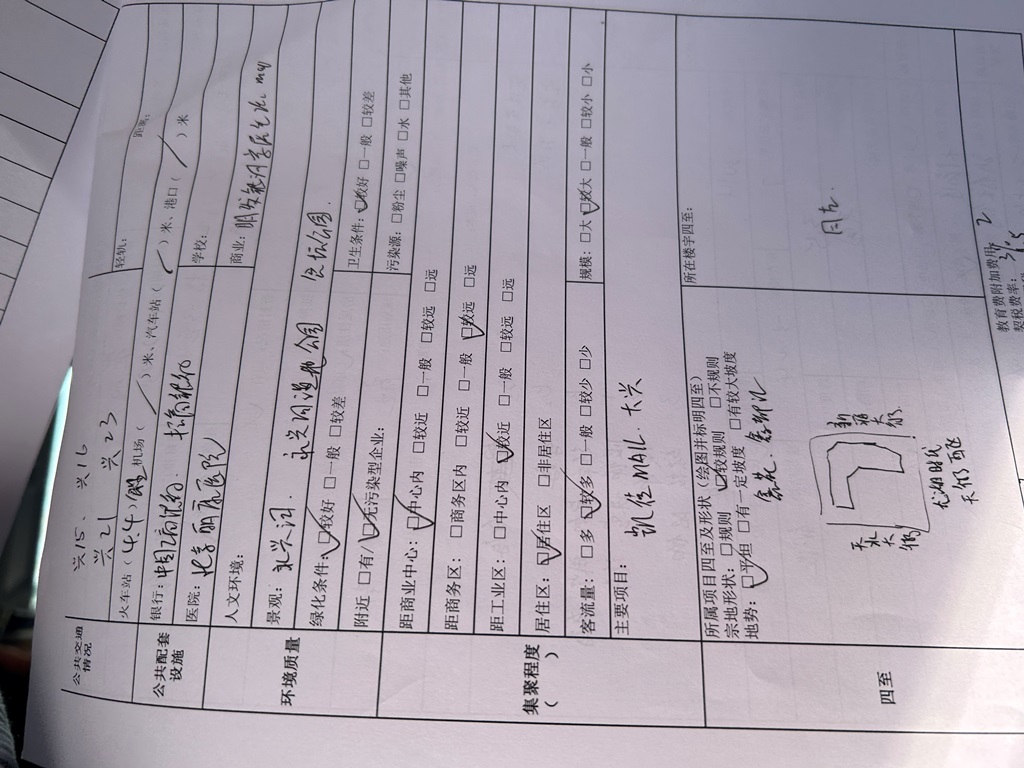 公共交通情况
兴15、 兴16
兴21 兴23
轻轨：
距离：
火车站（4.4）米、机场（ ）米、汽车站（ ）米、港口（ ）米
公共配套设施
银行：中国
招商银行
医院：北京 医院
学校：
商业：
人文环境：
环境质量
景观：永兴河、 永兴河湿地公园
公园.
绿化条件：□较好 □一般 □较差
卫生条件：□较好 □一般 □较差
附近 □有/□无污染型企业：
污染源：□粉尘 □噪声 □水 □其他
集聚程度（ ）
距商业中心：□中心内 □较近 □一般 □较远 □远
距商务区：□商务区内 □较近 □一般 □较远 □远
距工业区：□中心内 □较近 □一般 □较远 □远
居住区：□居住区 □非居住区
客流量：□多 □较多 □一般 □较少 □少
规模：□大 □较大 □一般 □较小 □小
主要项目：
凯德MALL. 大兴
四至
所属项目四至及形状（绘图并标明四至）
宗地形状：□规则 □较规则 □不规则
地势：□平坦 □有一定坡度 □有较大坡度
所在楼宇四至：
同左
天水大街
教育费附加费用：2
契税费率：3/1.5